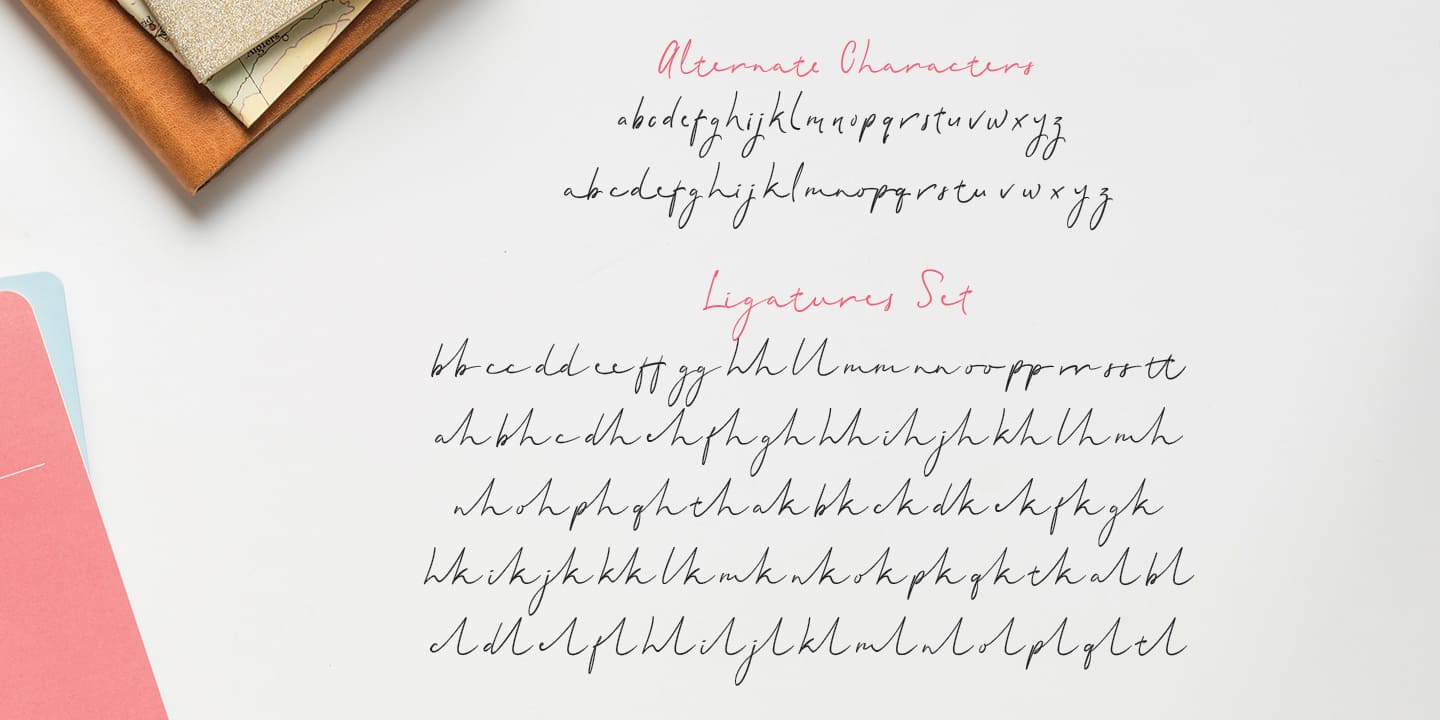 Algiers
Alternate Characters
abcdefghijklmnopqrstuvwxyz
abcdefghijklmnopqrstuvwxyz
Ligatures Set
bbccddeeffgghhllmmnnoopprrsstt
ahbhchdhehfhghhhihjhkhlhmh
nhohphqhthakbkckdkekfkgk
hkikjkkklkmknkokpkqktkalbl
cldlelflhliljlklmlnlolplqltl